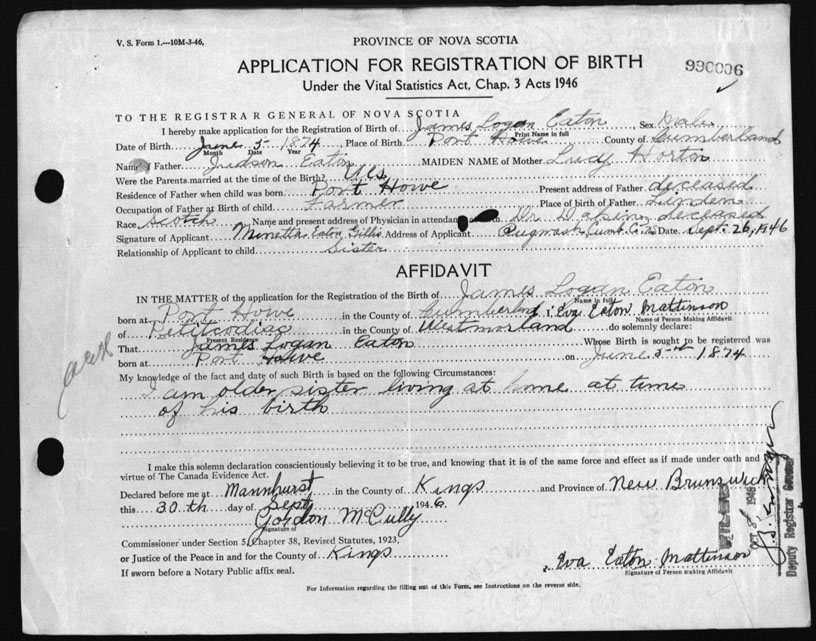 V. S. Form 1.—10M-3-46,
PROVINCE OF NOVA SCOTIA
APPLICATION FOR REGISTRATION OF BIRTH
990006
Under the Vital Statistics Act, Chap. 3 Acts 1946
TO THE REGISTRAR GENERAL OF NOVA SCOTIA
I hereby make application for the Registration of Birth of James Logan Eaton Sex Male
Print Name in full
Date of Birth June 5 1874 Place of Birth Port Howe County of Cumberland
Month Date Year
Name of Father Judson Eaton MAIDEN NAME of Mother Lucy Horton
Were the Parents married at the time of the Birth? Yes
Residence of Father when child was born Port Howe Present address of Father deceased
Occupation of Father at Birth of child Farmer Place of birth of Father Linden
Race Scotch Name and present address of Physician in attendance Dr deceased
Signature of Applicant Minetta Eaton Gillis Address of Applicant Pugwash Cumb. Co. N.S Date Sept. 26, 1946
Relationship of Applicant to child Sister
AFFIDAVIT
IN THE MATTER of the application for the Registration of Birth of James Logan Eaton
Name in full
born at Port Howe in the County of Cumberland I Eva Eaton Mattinson
Name of Person Making Affidavit
of Petitcodiac in the County of Westmorland do solemnly declare:
Present Residence
That James Logan Eaton Whose Birth is sought to be registered was
born at Port Howe on June 5th 1874
My knowledge of the fact and date of such Birth is based on the following Circumstances:
I am older sister living at home at time
of his birth
I make this solemn declaration conscientiously believing it to be true, and knowing that it is of the same force and effect as if made under oath and
virtue of The Canada Evidence Act.
Declared before me at Mannhurst in the County of Kings and Province of New Brunswick
this 30th day of Sept 1946
Gordon McCully
Signature of
Commissioner under Section 5, Chapter 38, Revised Statutes, 1923,
or Justice of the Peace in and for the County of Kings
If sworn before a Notary Public affix seal.
Eva Eaton Mattinson
Signature of Person making Affidavit
For Information regarding the filling out of this Form, see Instructions on the reverse side.
OCT 8 1946
Deputy Registrar General